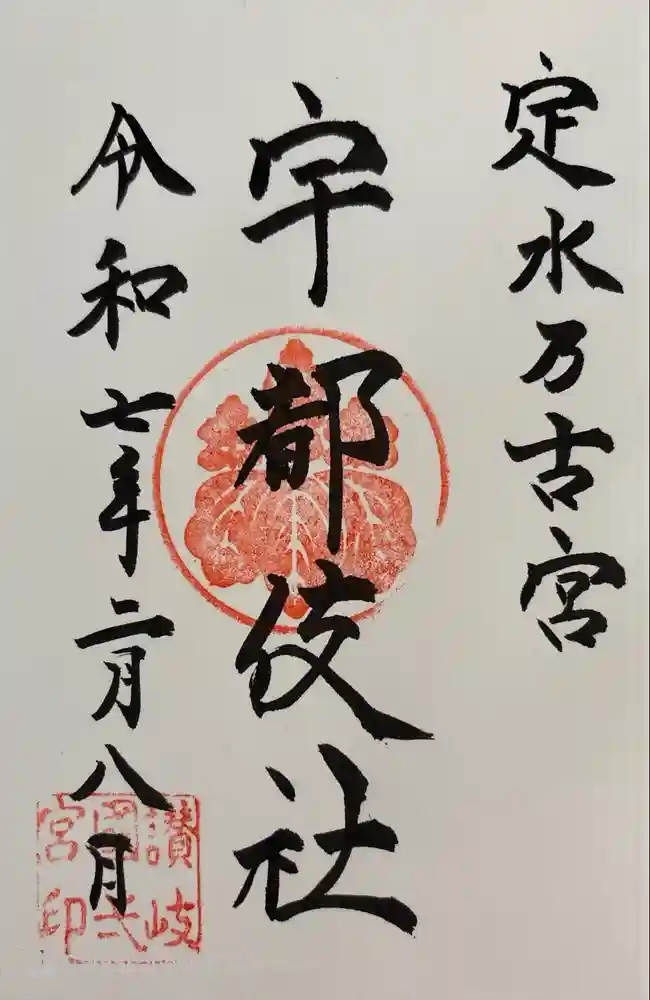 定水乃古宮
宇都伎社
令和七年二月八日
讃岐
國弍
宮印